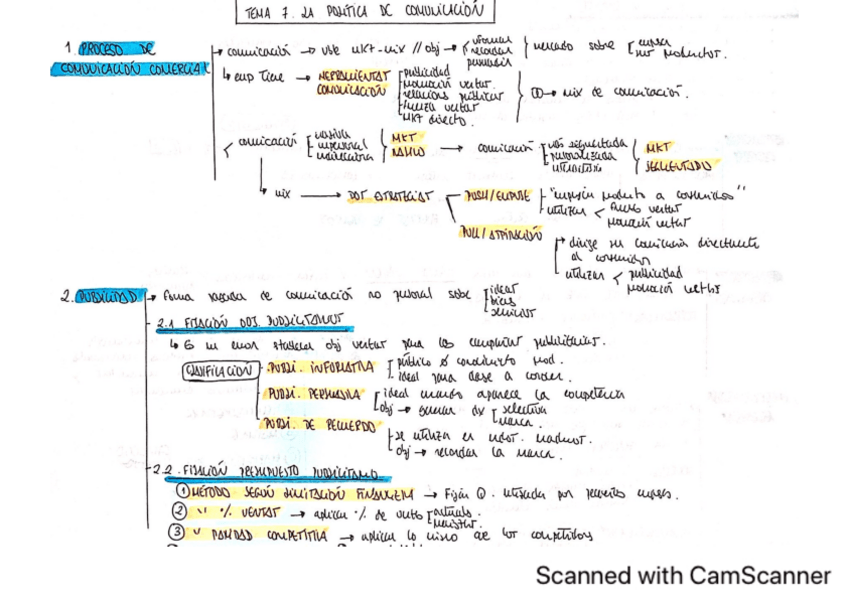 TEMA 7. LA POLÍTICA DE COMUNICACIÓN
1. PROCESO DE COMUNICACIÓN COMERCIAL
comunicación → vble mkt-mix // obj → informar recordar persuadir } mercado sobre [ empresa sus productos.
emp tiene → HERRAMIENTAS COMUNICACIÓN [ publicidad promoción ventas. relaciones públicas fuerza ventas MKT directo. } → mix de comunicación.
comunicación [ masiva impersonal unidireccional { MKT MASIVO → comunicación [ más segmentada personalizada interactiva { MKT SEGMENTADO
mix → DOS ESTRATEGIAS
PUSH/EMPUJE "empujan producto a consumidores"
utilizan < fuerza ventas promoción ventas
PULL/ATRACCIÓN
dirige su comunicación directamente al consumidor
utilizan < publicidad promoción ventas
2. PUBLICIDAD → forma pagada de comunicación no personal sobre [ ideas bienes servicios
2.1 FIJACIÓN OBJ. PUBLICITARIOS
↳ Es un establecer obj ventas para las campañas publicitarias.
CLASIFICACIÓN
PUBLI. INFORMATIVA [ público ø conocimiento prod. ideal para darse a conocer.
PUBLI. PERSUASIVA [ ideal cuando aparece la competencia
obj → generar dx [ selectiva marca.
PUBLI. DE RECUERDO
se utiliza en mdos. maduros.
obj → recordar la marca.
2.2. FIJACIÓN PRESUPUESTO PUBLICITARIO
① MÉTODO SEGÚN LIMITACIÓN FINANCIERA → Fijan Q. utilizada por pequeñas empres.
② " % VENTAS → aplicar % de ventas [ actuales. previstas.
③ " PARIDAD COMPETITIVA → aplicar lo mismo que los competidores
Scanned with CamScanner